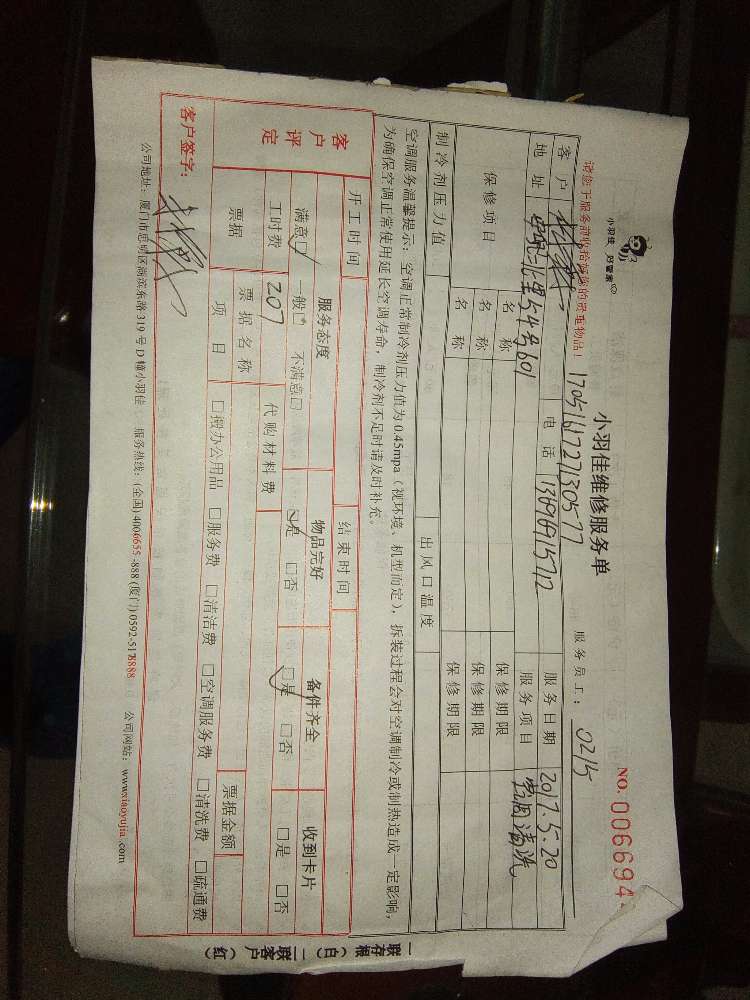 小羽佳 好管家
小羽佳维修服务单
NO. 006694
请您于服务前收拾好您的贵重物品!
17051617271130577
服务员工: 0215
客户
电话 13696915712
服务日期 2017.5.20
地址
北里54号601
服务项目 空调清洗
保修项目
名称
保修期限
名称
保修期限
名称
保修期限
制冷剂压力值
出风口温度
空调服务温馨提示: 空调正常制冷剂压力值为0.45mpa(视环境、机型而定), 拆装过程会对空调制冷或制热造成一定影响,
为确保空调正常使用延长空调寿命, 制冷剂不足时请及时补充。
开工时间
结束时间
客户评定
服务态度
物品完好
备件齐全
收到卡片
满意□ 一般□ 不满意□
□是 □否
□是 □否
□是 □否
工时费 207
代购材料费
票据
票据名称
票据金额
项目
□授办公用品 □服务费 □清洁费 □空调服务费 □清洗费 □疏通费
客户签字:
公司地址: 厦门市思明区湖滨东路319号D幢小羽佳 服务热线: (全国)4006655-888 (厦门)0592-5178888 公司网站: www.xiaoyujia.com
一联存根(白) 二联客户(红)